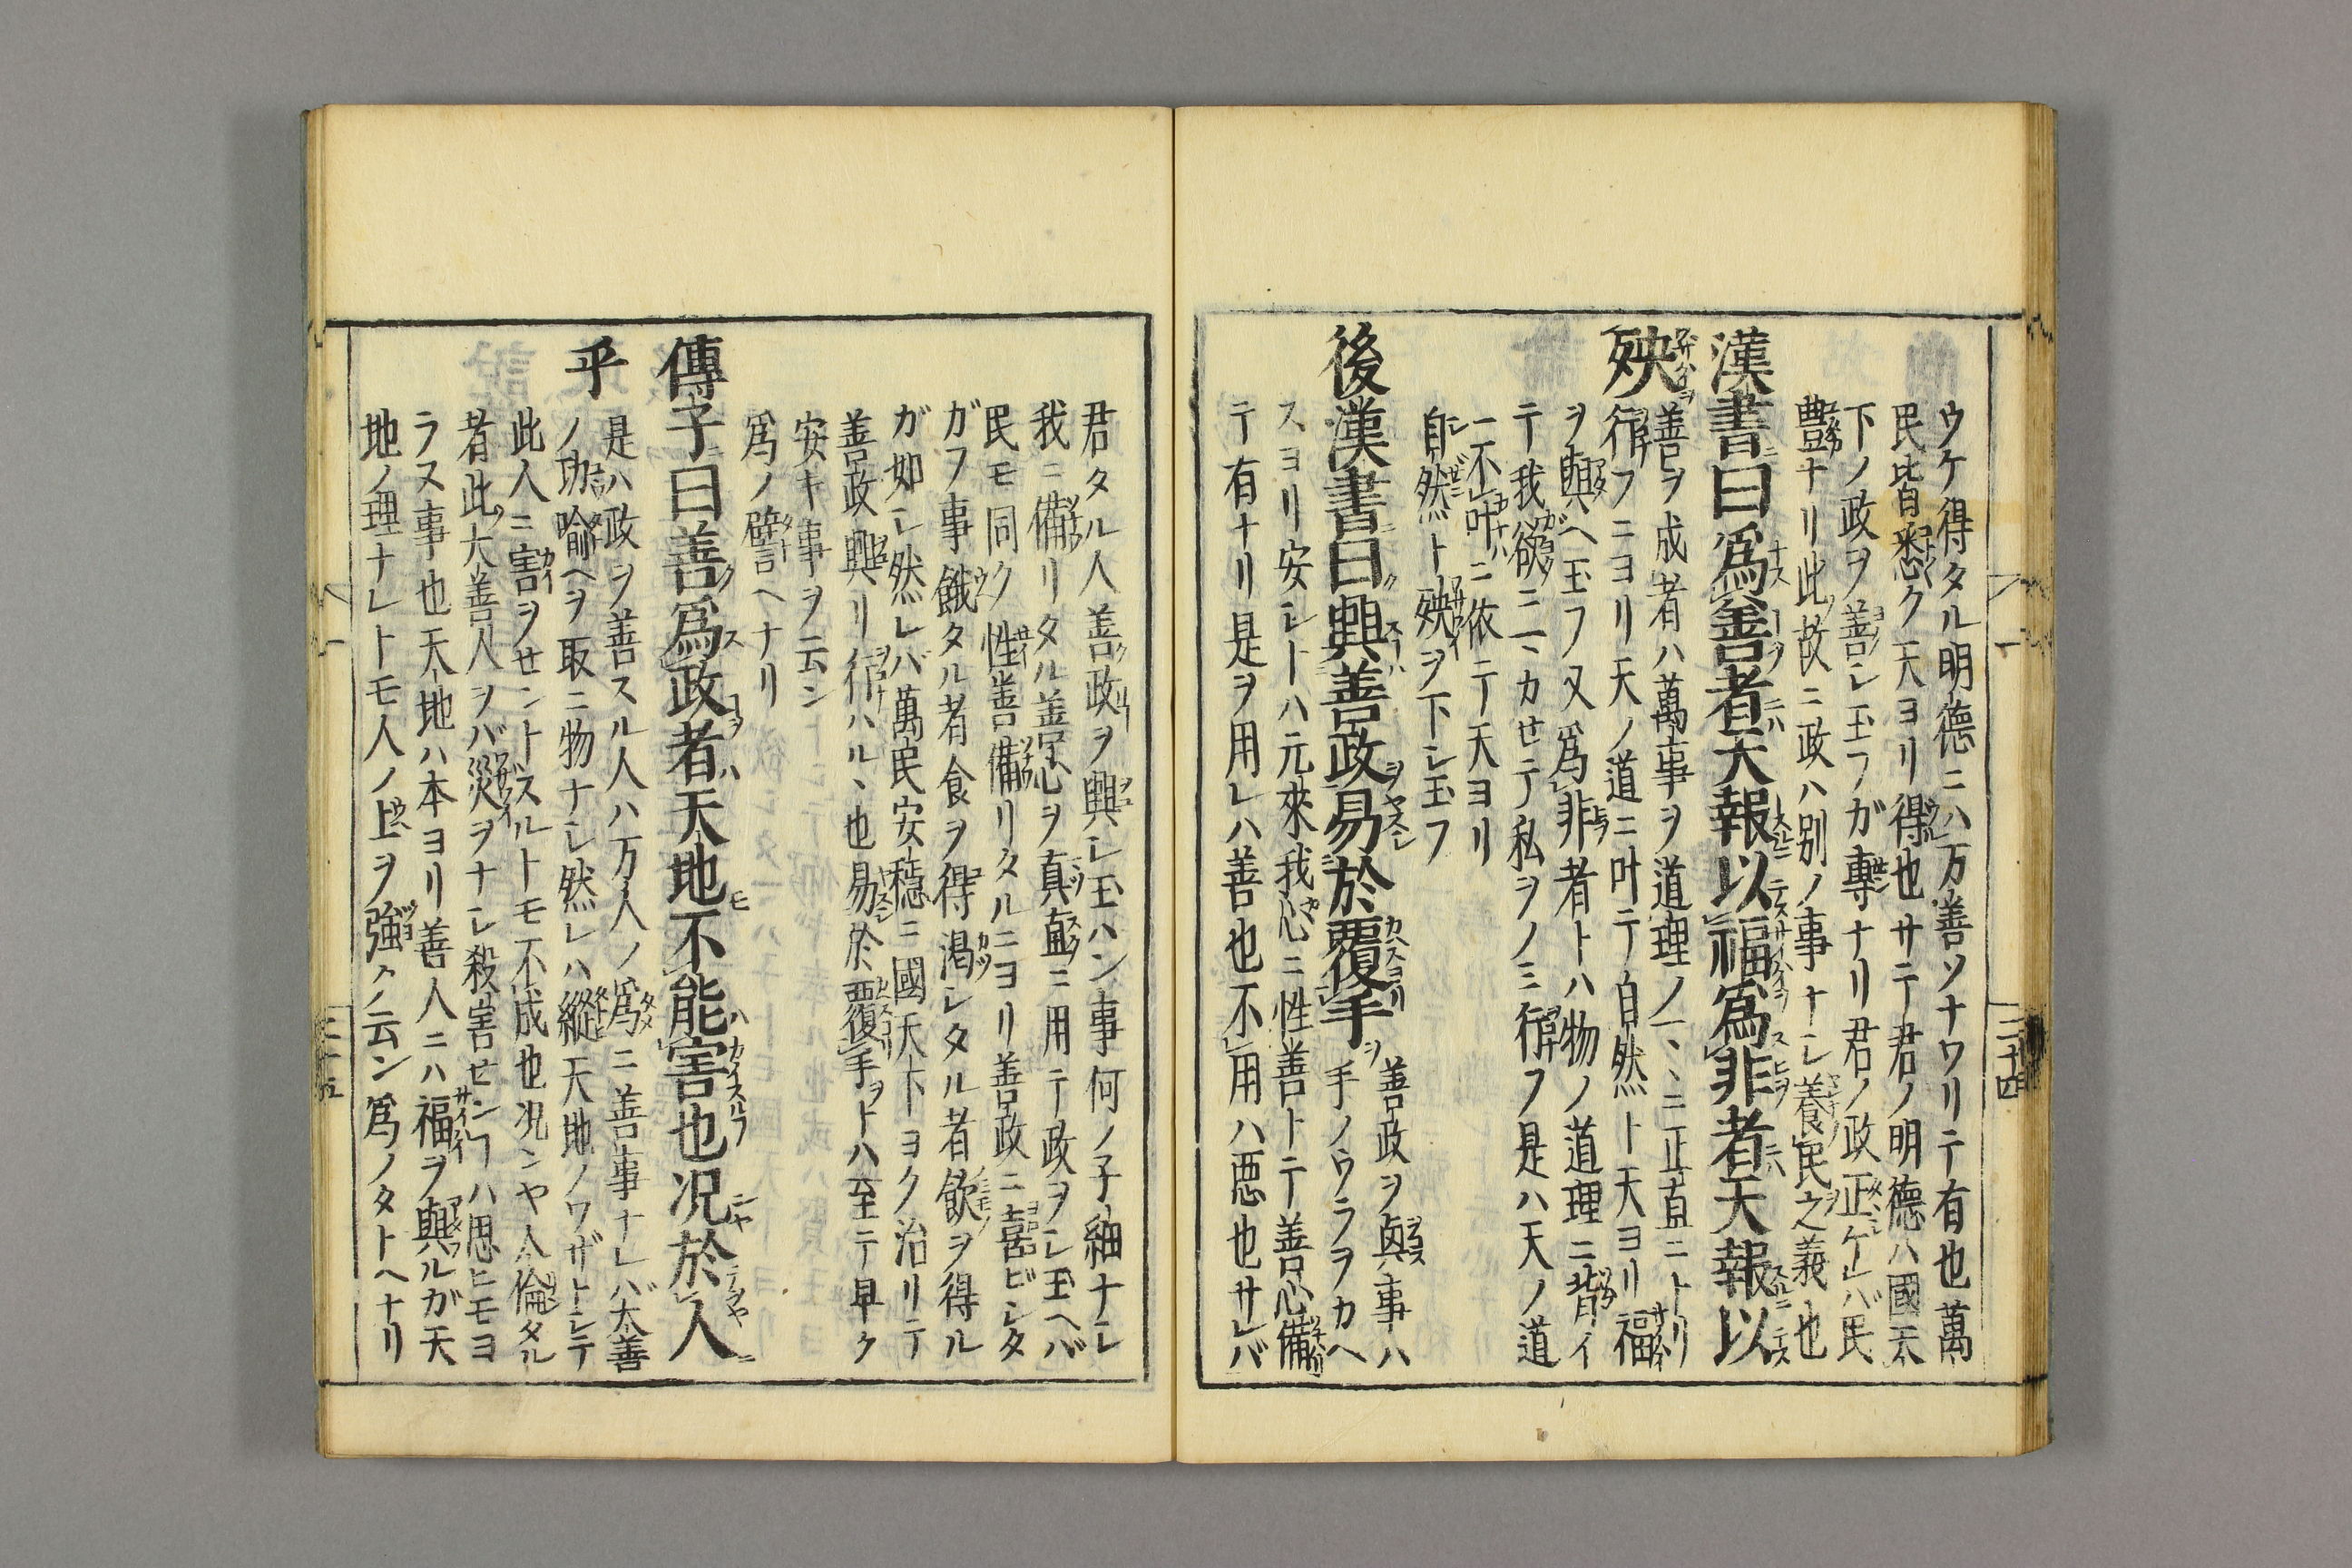 ウケ得タル明德ニハ万善ソナワリテ有也萬
民皆悉ク天ヨリ得也サテ君ノ明德ハ國天
下ノ政ヲ善シ玉フガ專ナリ君ノ政正ケレバ民
豊ナリ此故ニ政ハ別ノ事ナシ養民之義也
漢書曰爲善者天報以福爲非者天報以
殃
善ヲ成者ハ萬事ヲ道理ノ一ヽニ正直ニトリ
行フニヨリ天ノ道ニ叶テ自然ト天ヨリ福
ヲ與ヘ玉フ又爲非者トハ物ノ道理ニ背イ
テ我欲ニヽカせテ私ヲノミ行フ是ハ天ノ道
ニ不叶ニ依テ天ヨリ
自然ト殃ヲ下シ玉フ
後漢書曰興善政易於覆手
善政ヲ興事ハ
手ノウラヲカヘ
スヨリ安シトハ元來我心ニ性善トテ善心備
テ有ナリ是ヲ用レハ善也不用ハ悪也サレバ
君タル人善政ヲ興シ玉ハン事何ノ子細ナシ
我ニ備リタル善心ヲ真直ニ用テ政ヲシ玉ヘバ
民モ同ク性善備リタルニヨリ善政ニ喜ビシタ
ガフ事餓タル者食ヲ得渇レタル者飲ヲ得ル
ガ如シ然レバ萬民安穏ニ國天下ヨク治リテ
善政興リ行ハルヽ也易於覆手ヲトハ至テ早ク
安キ事ヲ云ン
爲ノ譬ヘナリ
傳子曰善爲政者天地不能害也况於人
乎
是ハ政ヲ善スル人ハ万人ノ爲ニ善事ナレバ大善
ノ功喩ヘヲ取ニ物ナシ然レハ縱天地ノワザトシテ
此人ニ害ヲせントスルトモ不成也况ンヤ人倫タル
者此大善人ヲバ災ヲナシ殺害せンヿハ思ヒモヨ
ラヌ事也天地ハ本ヨリ善人ニハ福ヲ與ルガ天
地ノ理ナレトモ人ノ上ヲ強ク云ン爲ノタトヘナリ
二十四